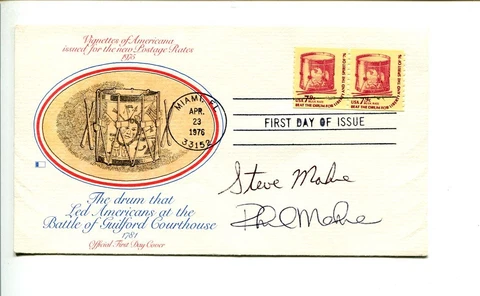 Vignettes of Americana
issued for the new Postage Rates
1975
MIAMI, FL
APR.
23
1976
33152
FIRST DAY OF ISSUE
USA
BEAT THE DRUM FOR LIBERTY AND THE SPIRIT OF 76
USA
BEAT THE DRUM FOR LIBERTY AND THE SPIRIT OF 76
Steve Mahre
Phil Mahre
The drum that
Led Americans at the
Battle of Guilford Courthouse
1781
Official First Day Cover